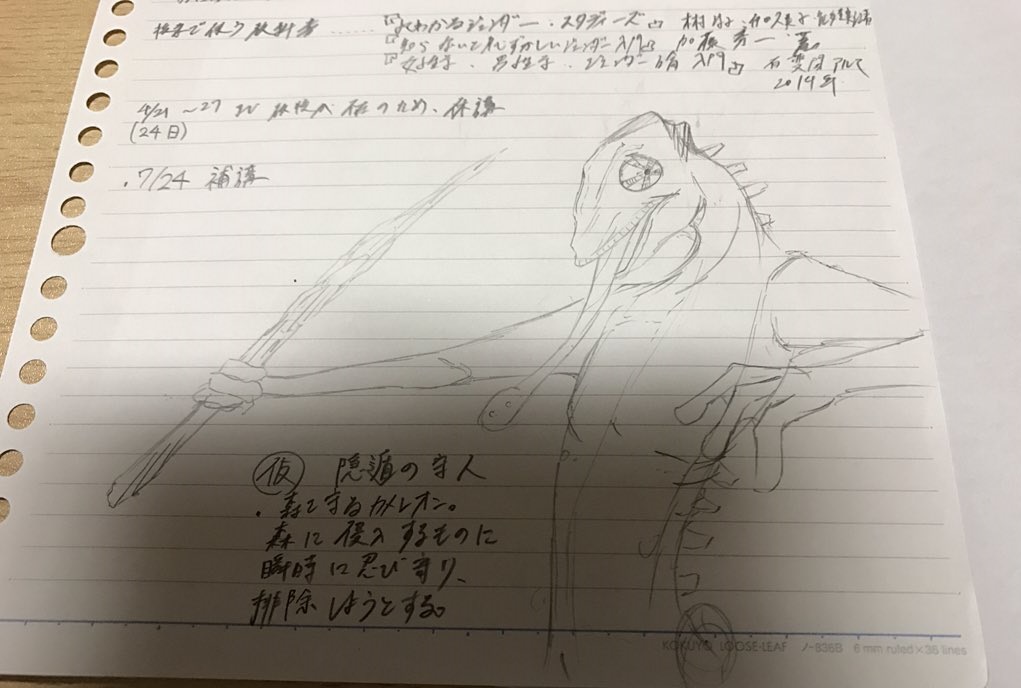 授業で使う教科書 ……… 『よくわかるジェンダー・スタディーズ』
『知らないと恥ずかしいジェンダー入門』 加藤秀一 著
『女性学・男性学 ジェンダー論入門』 有斐閣アルマ
2019年
4/21 ~ 27 休講
(24日)
・7/24 補講
仮 隠遁の守人
・森を守るカメレオン。
森に侵入するものに
瞬時に忍び寄り、
排除しようとする。
KOKUYO LOOSE-LEAF ノ-836B 6 mm ruled×36 lines